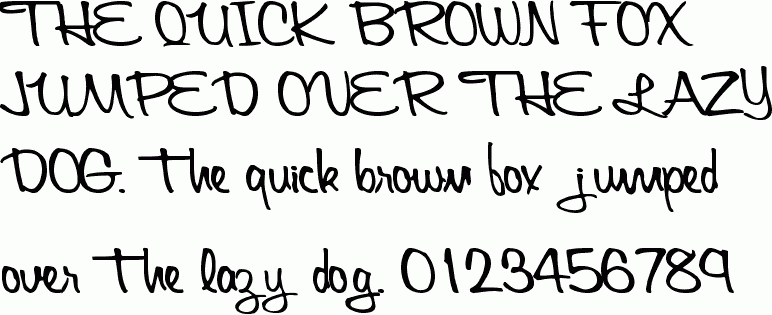 THE QUICK BROWN FOX
JUMPED OVER THE LAZY
DOG. The quick brown fox jumped
over The lazy dog. 0123456789